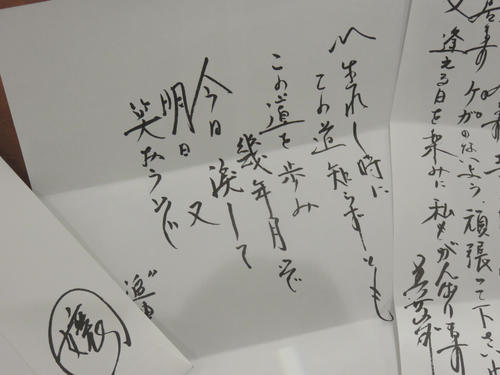 ケガのないよう、頑張って下さい
又 逢える日を楽みに 私もがんばります
生れし時に
この道 知らずとも
この道を歩み
幾年月ぞ
今日 涙して
明日 又
笑おうぞ